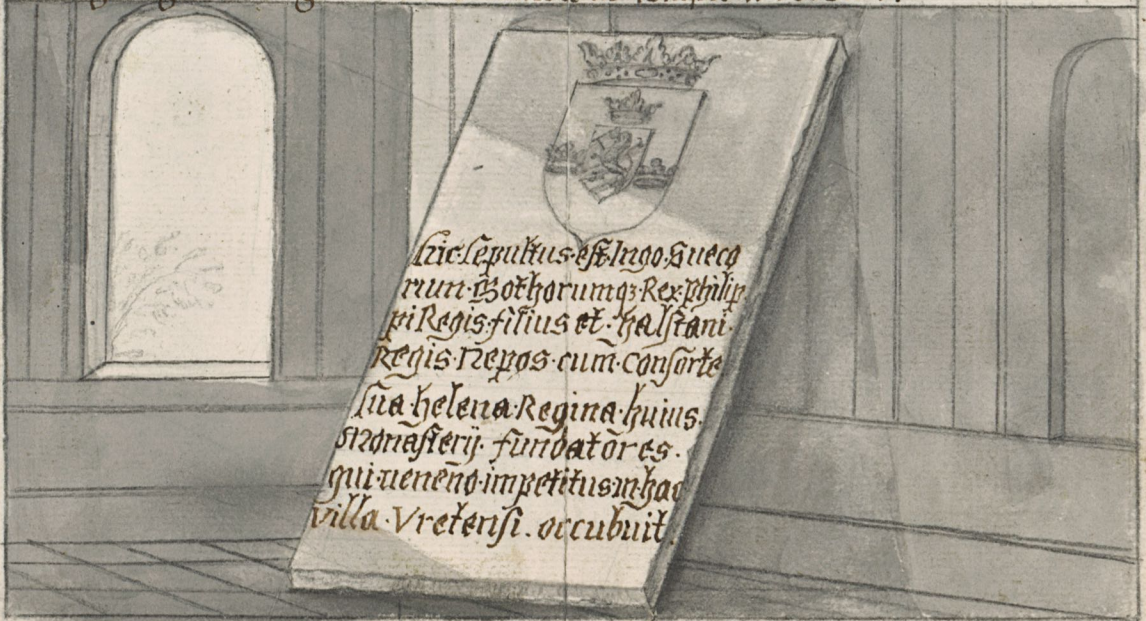 hic·sepultus·est·Ingo·Sueco
rum·Gothorumq3·Rex·Philip
pi Regis·filius et·halstani·
Regis·Nepos·cum·consorte
sua·helena·Regina·huius·
Monasterij·fundatores·
qui·ueneno·impetitus·in·hac
villa·Vretensi·occubuit·